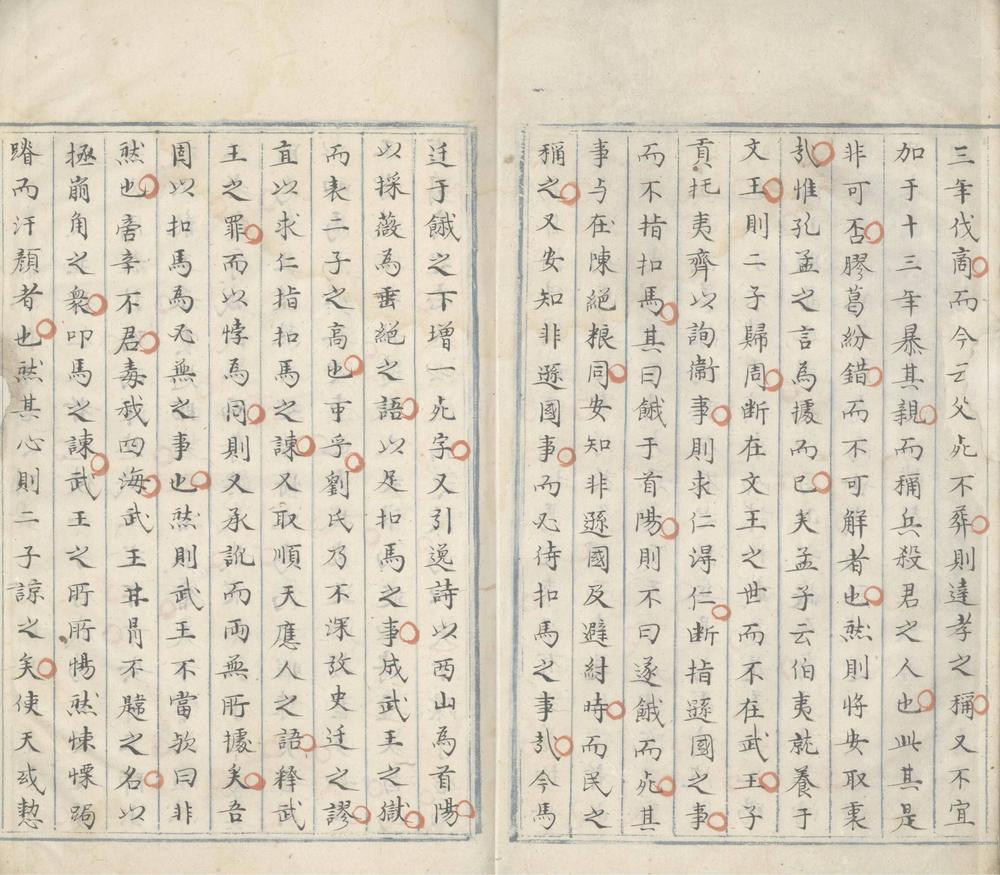 三年伐商而今云父死不葬則達孝之稱又不宜
加于十三年暴其親而稱兵殺君之人也此其是
非可否膠葛紛錯而不可解者也然則將安取衷
㢤惟孔孟之言為據而已矣孟子云伯夷就養于
文王則二子歸周断在文王之世而不在武王子
貢托夷齊以詢衞事則求仁淂仁断指遜國之事
而不指扣馬其曰餓于首陽則不曰遂餓而死其
事与在陳絕粮同安知非遜國及避紂時而民之
稱之又安知非遜國事而必待扣馬之事㢤今馬
迁于餓之下增一死字又引逸詩以西山為首陽
以採薇為垂絕之語以足扣馬之事成武王之獄
而表二子之高也可乎劉氏乃不深攷史迁之謬
直以求仁指扣馬之諫又取順天應人之語釋武
王之罪而以悖為同則又承訛而両無所據矣吾
固以扣馬為必無之事也然則武王不當欤曰非
然也啻辛不君毒我四海武王其不韙之名以
拯崩角之衆叩馬之諫武王之所惕然悚慄跼
蹐而汗顏者也然其心則二子諒之矣使天或愸